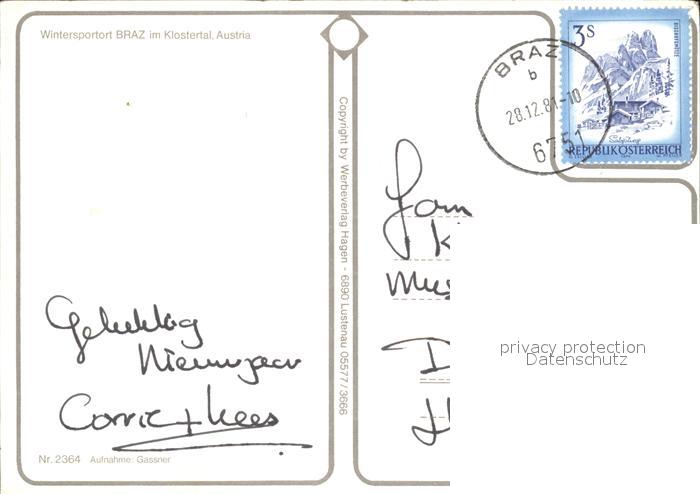 Wintersportort BRAZ im Klostertal, Austria
3 S
REPUBLIK ÖSTERREICH
BRAZ
b
28.12.81-10
6751
Copyright by Werbeverlag Hagen - 6890 Lustenau 05577/3666
Gelukkig
Nieuwjaar
Corrie + Kees
Fam
Mus
D
privacy protection
Datenschutz
Nr. 2364 Aufnahme: Gassner